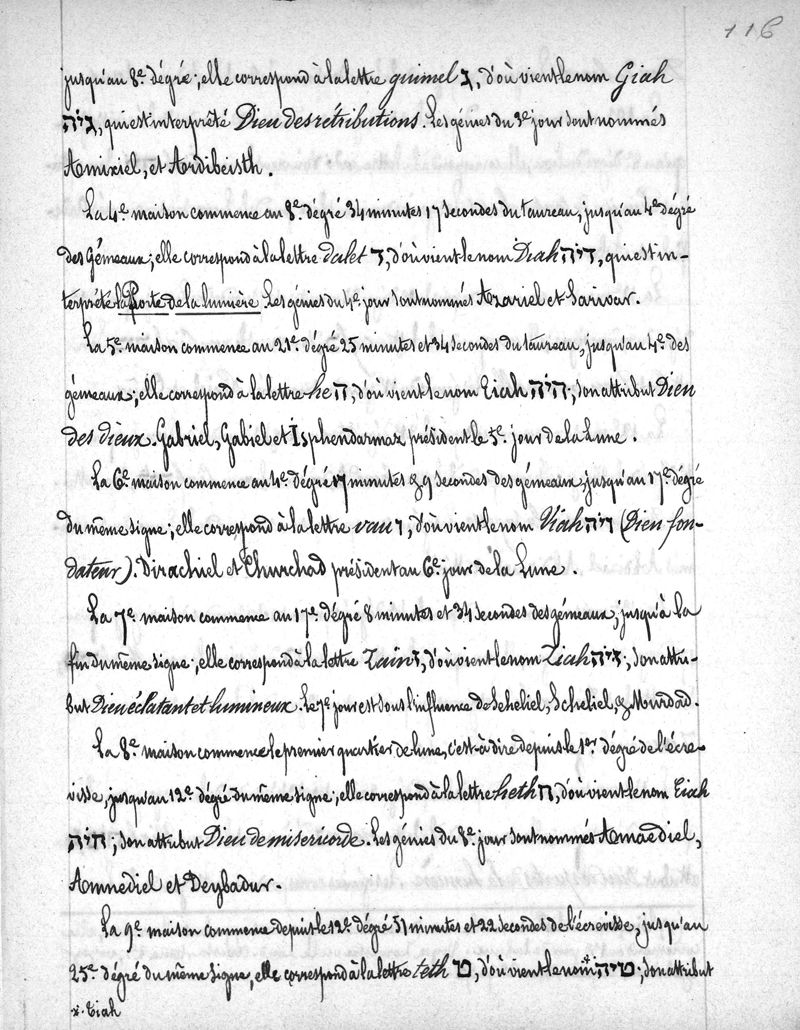 116
jusqu'au 8e dégré; elle correspond à la lettre guimel ג, d'où vient le nom Giah
גיה, qui est interprêté Dieu des rétributions. Les génies du 3e jour sont nommés
Amixiel, et Ardibeisth.
La 4e maison commence au 8e dégré 34 minutes 17 secondes du taureau, jusqu'au 4e dégré
des Gémeaux; elle correspond à la lettre dalet ד, d'où vient le nom Diah דיה, qui est in-
terprêté la Porte de la lumière. Les génies du 4e jour sont nommés Azariel et Sarivar.
La 5e maison commence au 21e dégré 25 minutes et 34 secondes du taureau, jusqu'au 4e des
gémeaux; elle correspond à la lettre he ה, d'où vient le nom Eiah היה; son attribut Dieu
des dieux. Gabriel, Gabiel et Isphendarmaz président le 5e jour de la Lune.
La 6e maison commence au 4e dégré 17 minutes & 9 secondes des gémeaux, jusqu'au 17e dégré
du même signe; elle correspond à la lettre vau ו, d'où vient le nom Viah ויה (Dieu fon-
dateur). Dirachiel et Churchad président au 6e jour de la Lune.
La 7e maison commence au 17e dégré 8 minutes et 34 secondes des gémeaux, jusqu'à la
fin du même signe; elle correspond à la lettre Zain ז, d'où vient le nom Ziah זיה; son attri-
but Dieu éclatant et lumineux. Le 7e jour est sous l'influence de Seheliel, Scheliel, & Murdad.
La 8e maison commence le premier quartier de lune, c'est-à-dire depuis le 1er dégré de l'écre-
visse, jusqu'au 12e dégré du même signe; elle correspond à la lettre heth ח, d'où vient le nom Eiah
חיה; son attribut Dieu de misericorde. Les génies du 8e jour sont nommés Amaediel,
Amnediel et Deybadur.
La 9e maison commence depuis le 12e dégré 51 minutes et 22 secondes de l'écrevisse, jusqu'au
25e dégré du même signe, elle correspond à la lettre teth ט, d'où vient le nom* טיה; son attribut
*. Eiah